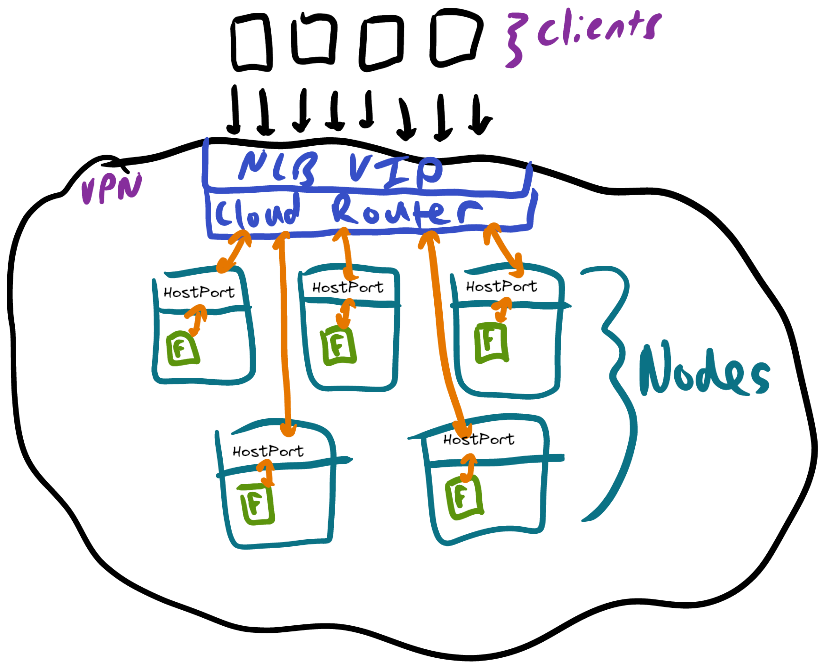 clients
NLB VIP
VPN
Cloud Router
HostPort
HostPort
HostPort
F
F
F
Nodes
HostPort
HostPort
F
F